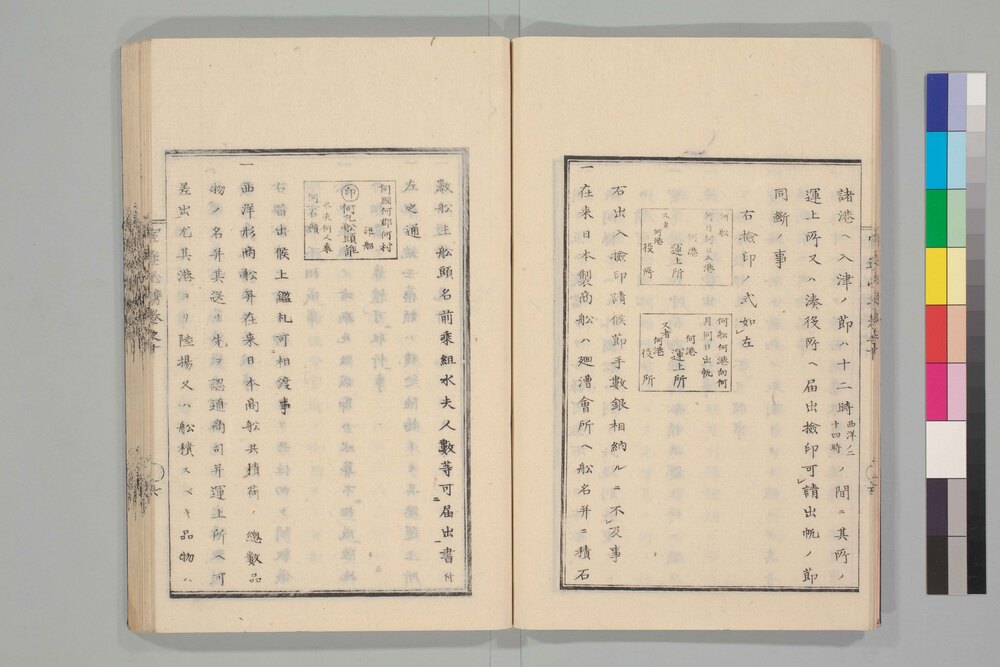 諸港ヘ入津ノ節ハ十二時西洋ノ二十四時ノ間ニ其所ノ
運上所又ハ湊役所ヘ届出撿印可請出帆ノ節
同斷ノ事
右撿印ノ式如左
何船
何月何日入港
何港
運上所
又者
何港
役所
何船何港向何
月何日出帆
何港
運上所
又者
何港
役所
石出入撿印請候節手數銀相納ルニ不及事
一在来日本製商船ハ廻漕會所ヘ船名并ニ積石
數船主船頭名前乗組水夫人數等可届出書付
左之通
何國何郡何村
誰船
印
何丸船頭誰
水夫何人乗
何石積
右届出候上鑑札可相渡事
一西洋形商船并在来日本商船共積荷ノ總數品
物ノ名并其送リ先ヲ認通商司并運上所ヘ可
差出尤其港ヨリ陸揚又ハ船積スベキ品物ハ